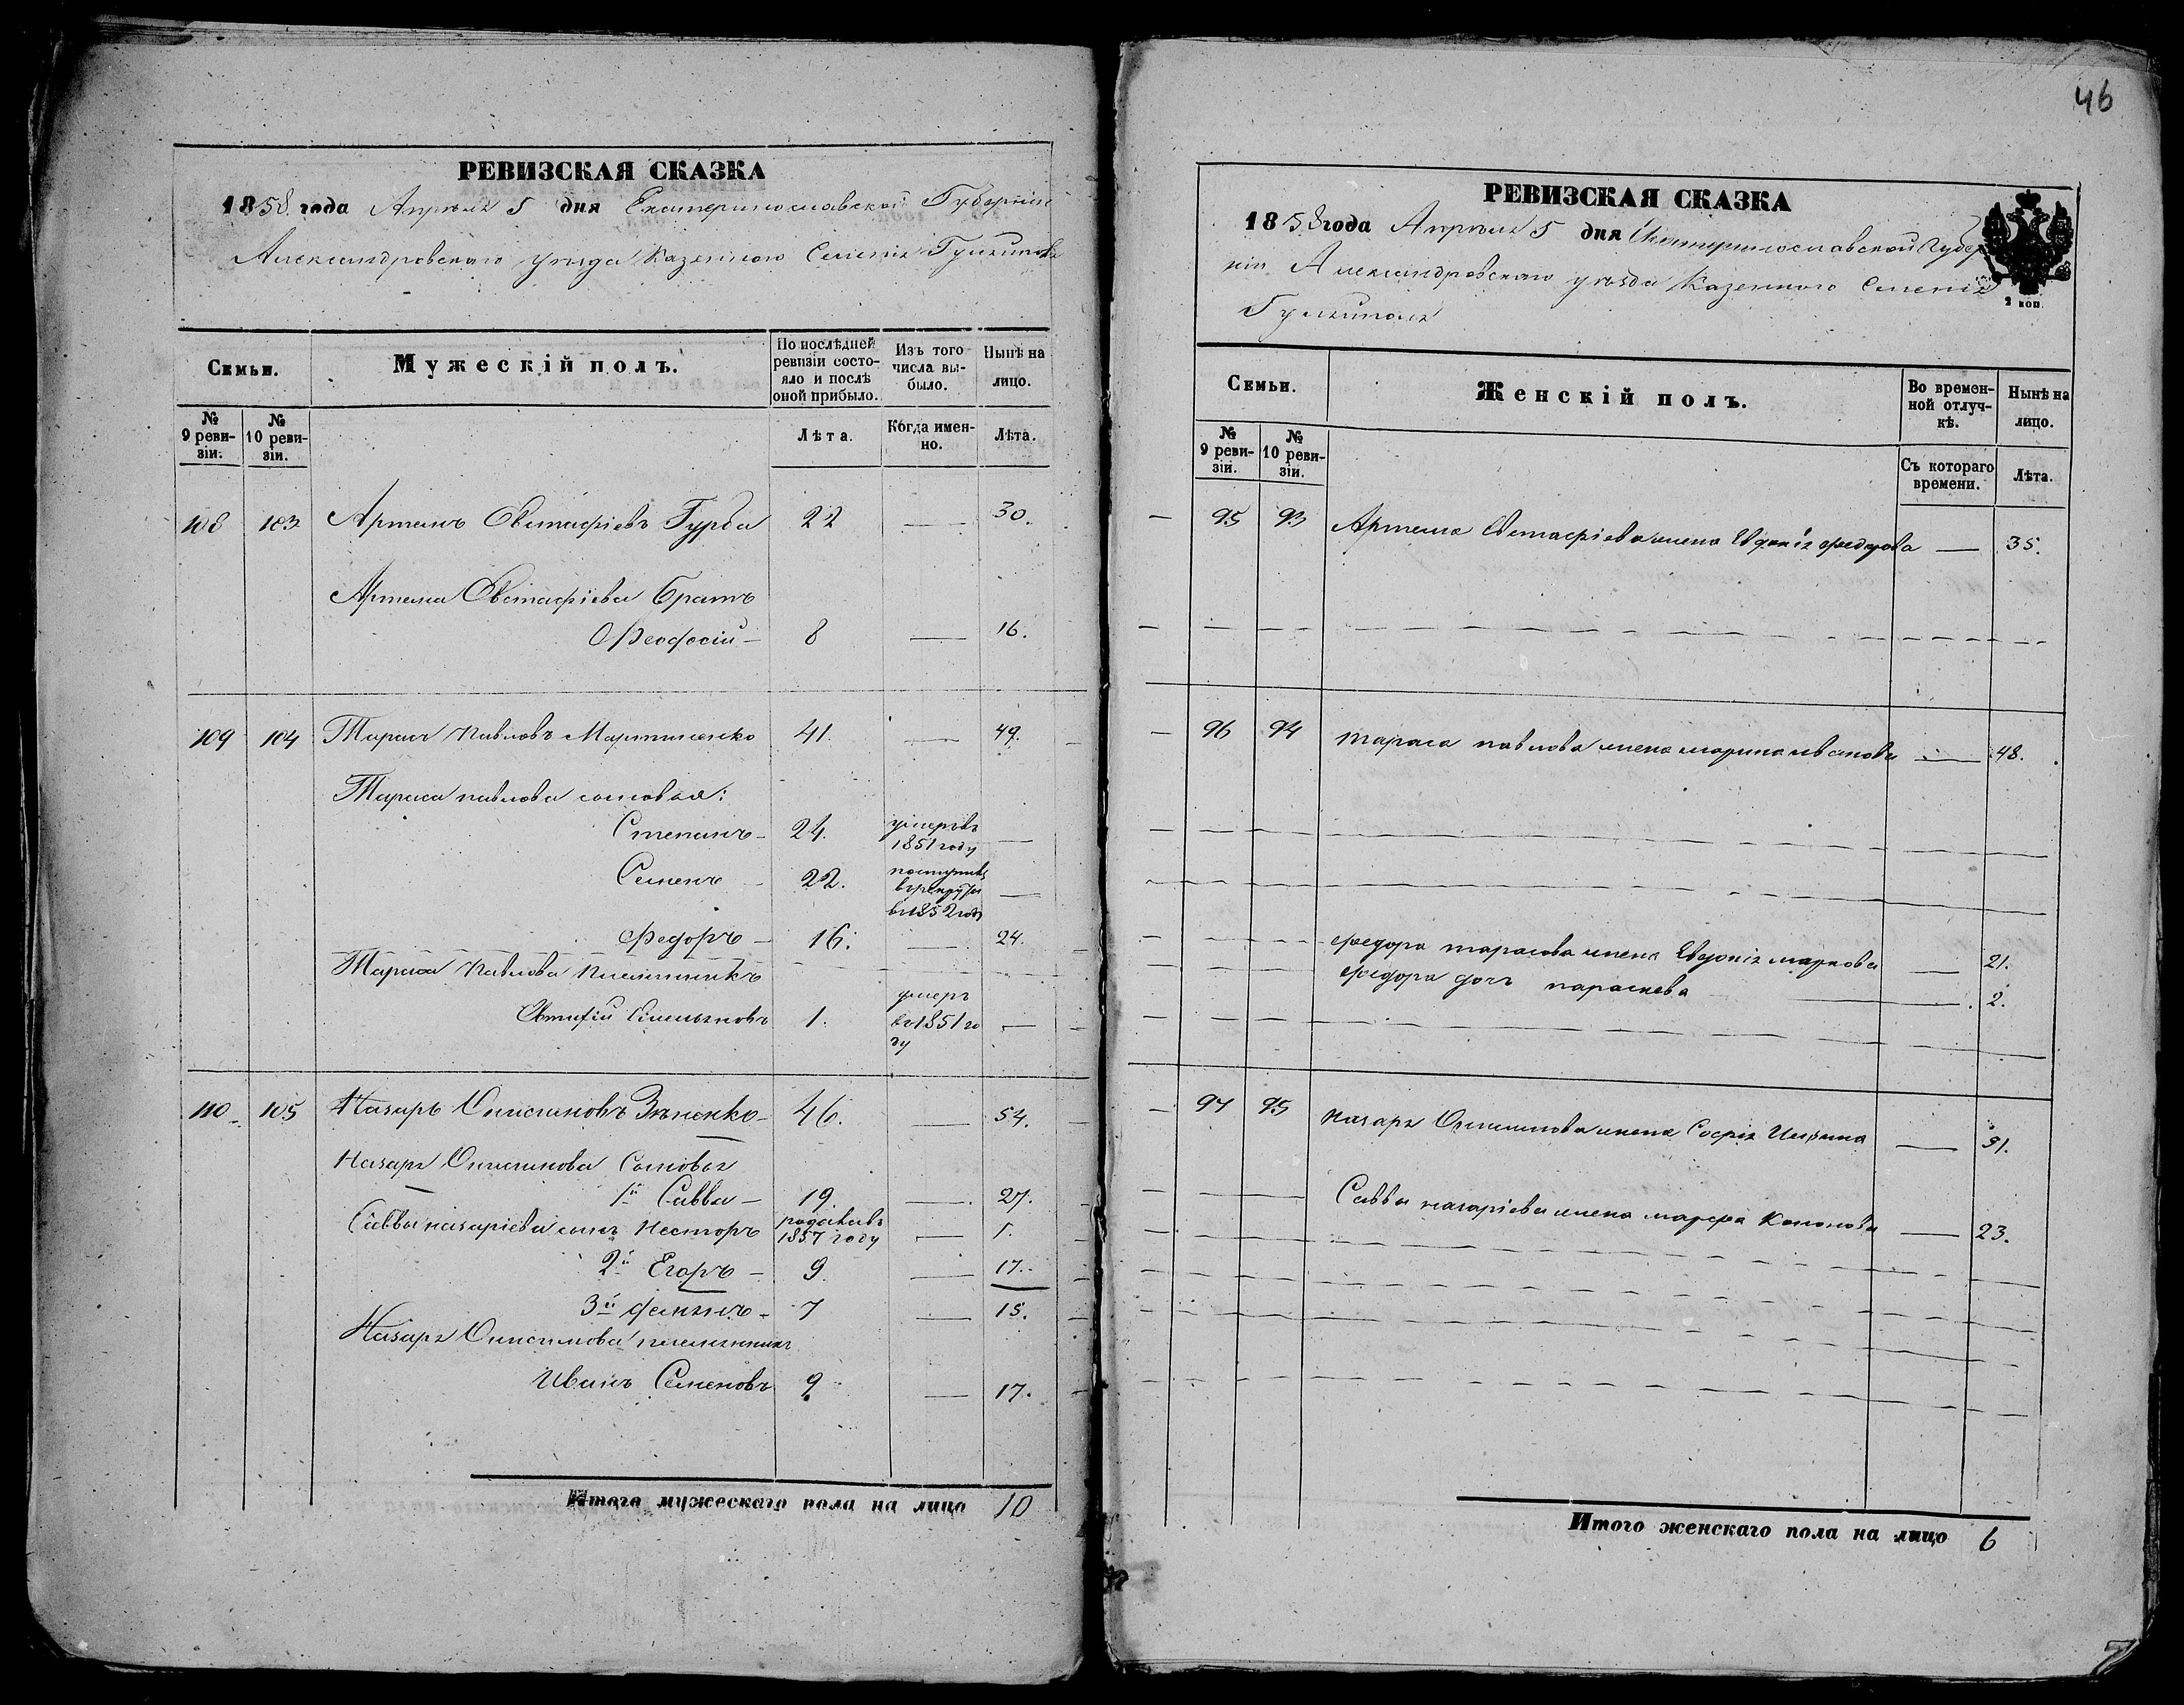 РЕВИЗСКАЯ СКАЗКА
1858 года Апреля 5 дня Екатеринославской Губернии
Александровского уезда Казенного Селенія Гуляйполя
Семьи.
Мужескій полъ.
По послѣдней ревизіи состояло и послѣ оной прибыло.
Изъ того числа выбыло.
Нынѣ на лицо.
№ 9 ревизіи.
№ 10 ревизіи.
Лѣта.
Когда именно.
Лѣта.
108 103 Артемъ Евстафіевъ Гурба 22 — 30.
Артема Евстафіева Братъ
Феодосій — 8 — 16.
109 104 Тарасъ Павловъ Мартыненко 41. — 49.
Тараса павлова сыновья:
Степанъ — 24. умеръ въ 1851 году —
Семенъ — 22. поступилъ въ рекруты въ 1852 году —
Федоръ — 16. — 24.
Тараса Павлова племянникъ
1. умеръ въ 1851 году —
110 105 Назаръ Онисимовъ 46. — 54.
Назара Онисимова Сыновья
1й Савва — 19. — 27.
Саввы назаріева сынъ Несторъ родился въ 1857 году — 1.
2й Егоръ — 9 — 17.
3й — 7 — 15.
Назара Онисимова племянникъ
Иванъ Семеновъ 9 — 17.
Итого мужескаго пола на лицо 10
46
РЕВИЗСКАЯ СКАЗКА
1858 года Апреля 5 дня Екатеринославской Губер
ніи Александровского уезда Казенного Селенія
Гуляйполя
2 коп.
Семьи.
Женскій полъ.
Во временной отлучкѣ.
Нынѣ на лицо.
№ 9 ревизіи.
№ 10 ревизіи.
Съ котораго времени.
Лѣта.
95 93 Артема Евстафіева жена Евдокія федорова — 35.
96 94 Тараса павлова жена марина иванова — 48.
федора тарасова жена Евдокія маркова — 21.
федора дочь параскева — 2.
97 95 назара Онисимова жена Софія — 31.
Саввы назаріева жена марфа Кононова — 23.
Итого женскаго пола на лицо 6